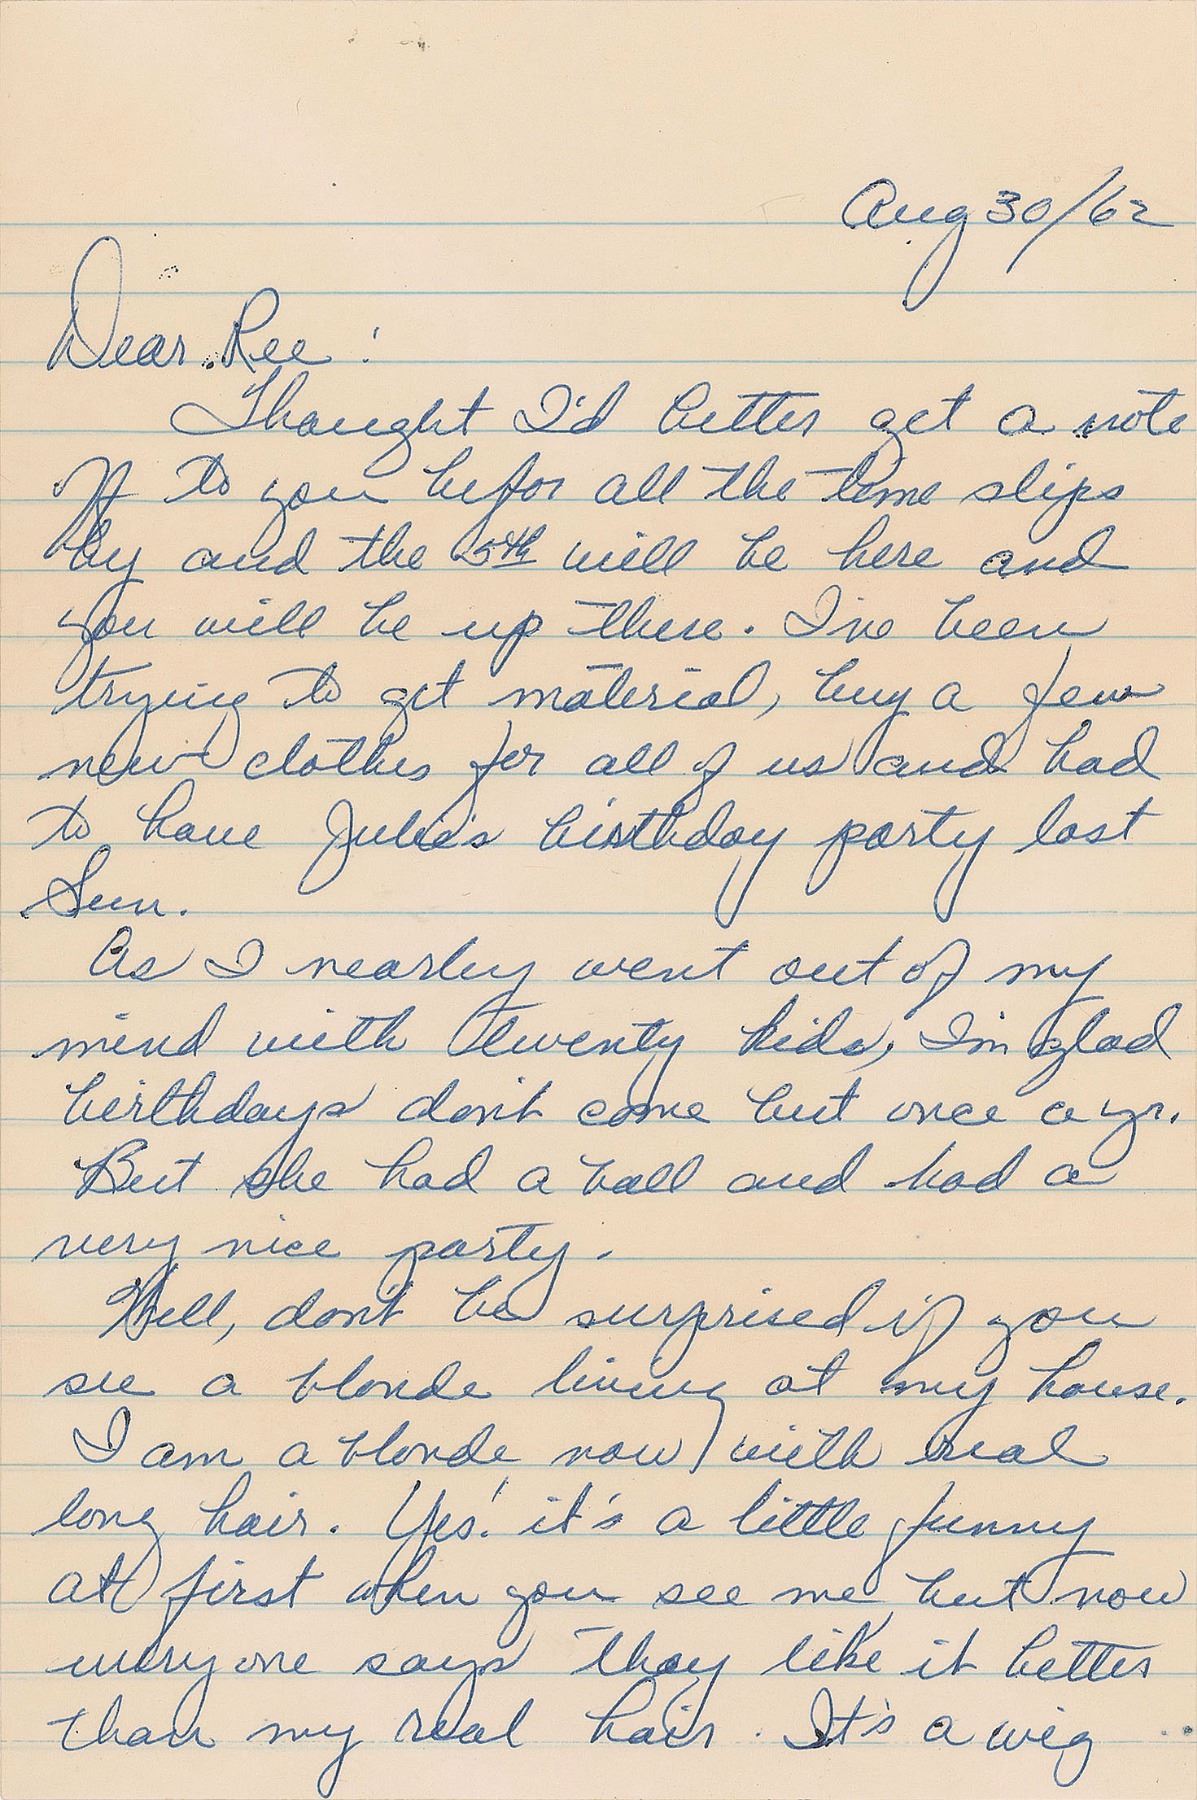 Aug 30/62
Dear Ree:
Thought I'd better get a note
off to you befor all the time slips
by and the 5th will be here and
you will be up there. I've been
trying to get material, buy a few
new clothes for all of us and had
to have Julie's birthday party last
Sun.
As I nearly went out of my
mind with twenty kids, I'm glad
birthdays don't come but once a yr.
But she had a ball and had a
very nice party.
Well, don't be surprised if you
see a blonde living at my house.
I am a blonde now, with real
long hair. Yes! it's a little funny
at first when you see me but now
everyone says they like it better
than my real hair. It's a wig